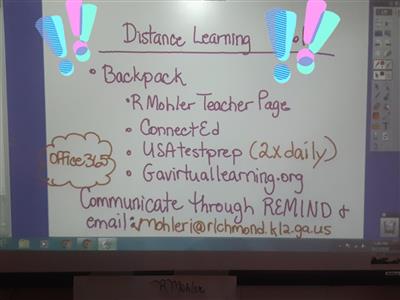 Distance Learning
• Backpack
• R Mohler Teacher Page
• ConnectEd
• USAtestprep (2x daily)
Office 365
• Gavirtuallearning.org
Communicate through REMIND &
email: mohleri@richmond.k12.ga.us
R Mohler